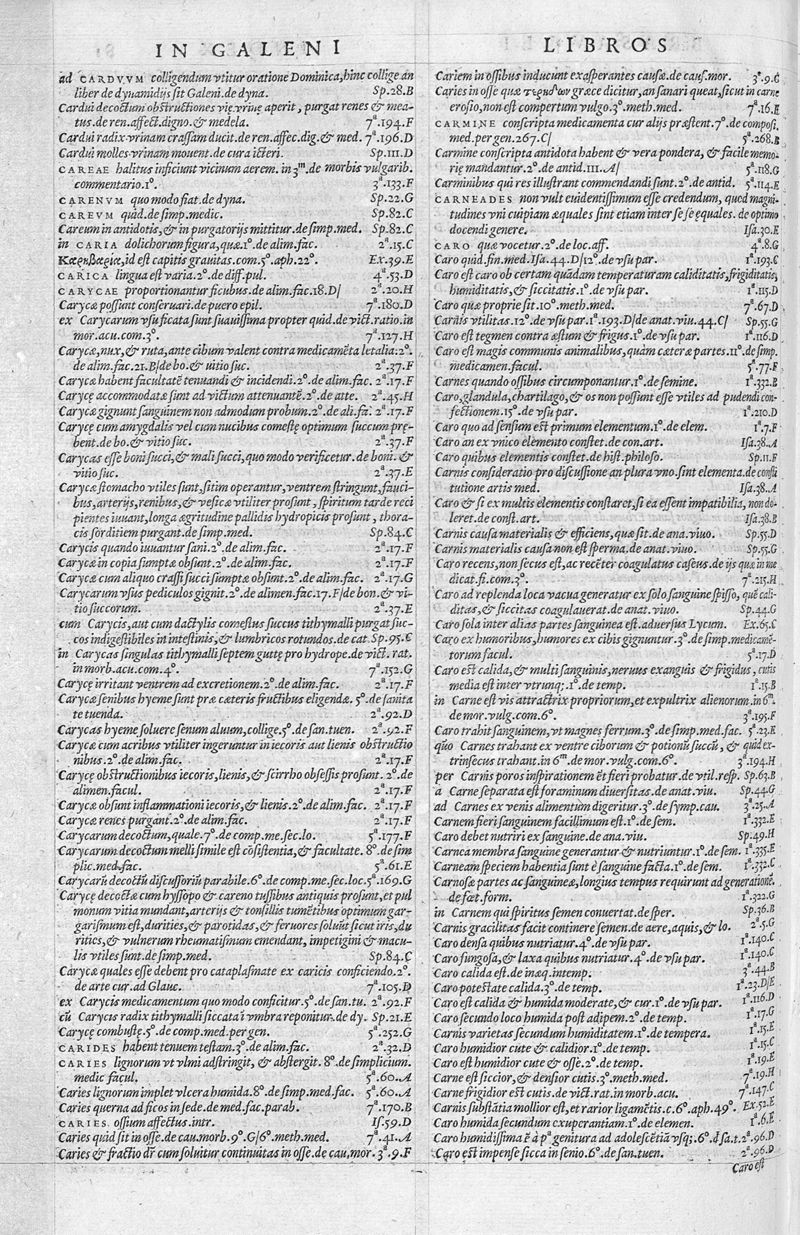 IN GALENI
ad CARDVVM colligendum vtitur oratione Dominica, hinc collige an
liber de dynamidijs sit Galeni. de dyna. Sp.28.B
Cardui decoctum obstructiones vię vrinę aperit, purgat renes & mea-
tus. de ren. affect. digno. & medela. 7ª.194.F
Cardui radix vrinam crassam ducit. de ren. affec. dig. & med. 7ª.196.D
Cardui molles vrinam mouent. de cura icteri. Sp.111.D
CAREAE halitus inficiunt vicinum aerem. in 3m. de morbis vulgarib.
commentario. 1º. 3ª.133.F
CARENVM quo modo fiat. de dyna. Sp.22.G
CAREVM quid. de simp. medic. Sp.82.C
Careum in antidotis, & in purgatorijs mittitur. de simp. med. Sp.82.C
in CARIA dolichorum figura, quæ. 1º. de alim. fac. 2ª.15.C
Καρηβαρία, id est capitis grauitas. com. 5º. aph. 22º. Ex.39.E
CARICA lingua est varia. 2º. de diff. pul. 4ª.53.D
CARYCAE proportionantur ficubus. de alim. fac. 18.D/ 2ª.20.H
Carycæ possunt conseruari. de puero epil. 7ª.180.D
ex Carycarum vsu ficata sunt suauissima propter quid. de vict. ratio. in
mor. acu. com. 3º. 7ª.127.H
Carycæ, nux, & ruta, ante cibum valent contra medicamēta letalia. 2º.
de alim. fac. 21.B/ de bo. & uitio suc. 2ª.37.F
Carycæ habent facultatē tenuandi & incidendi. 2º. de alim. fac. 2ª.17.F
Carycę accommodatæ sunt ad victum attenuantē. 2º. de atte. 2ª.45.H
Carycæ gignunt sanguinem non admodum probum. 2º. de ali. fa. 2ª.17.F
Carycę cum amygdalis vel cum nucibus comestę optimum succum prę-
bent. de bo. & vitio suc. 2ª.37.F
Carycas esse boni succi, & mali succi, quo modo verificetur. de boni. &
vitio suc. 2ª.37.E
Carycæ stomacho vtiles sunt, sitim operantur, ventrem stringunt, fauci-
bus, arterijs, renibus, & vesicæ vtiliter prosunt, spiritum tarde reci
pientes iuuant, longa ægritudine pallidis hydropicis prosunt, thora-
cis sorditiem purgant. de simp. med. Sp.84.C
Carycis quando iuuantur sani. 2º. de alim. fac. 2ª.17.F
Carycæ in copia sumptæ obsunt. 2º. de alim. fac. 2ª.17.F
Carycæ cum aliquo crassi succi sumptæ obsunt. 2º. de alim. fac. 2ª.17.G
Carycarum vsus pediculos gignit. 2º. de alimen. fac. 17.F/ de bon. & vi-
tio succorum. 2ª.37.E
cum Carycis, aut cum dactylis comestus succus tithymalli purgat suc-
cos indigestibiles in intestinis, & lumbricos rotundos. de cat. Sp.95.C
in Carycas singulas tithymalli septem guttę pro hydrope. de vict. rat.
in morb. acu. com. 4º. 7ª.152.G
Carycę irritant ventrem ad excretionem. 2º. de alim. fac. 2ª.17.F
Carycæ senibus hyeme sunt præ cæteris fructibus eligendæ. 5º. de sanita
te tuenda. 2ª.92.D
Carycas hyeme soluere senum aluum, collige. 5º. de san. tuen. 2ª.92.F
Carycæ cum acribus vtiliter ingeruntur in iecoris aut lienis obstructio
nibus. 2º. de alim. fac. 2ª.17.F
Carycę obstructionibus iecoris, lienis, & scirrho obsessis prosunt. 2º. de
alimen. facul. 2ª.17.F
Carycæ obsunt inflammationi iecoris, & lienis. 2º. de alim. fac. 2ª.17.F
Carycæ renes purgant. 2º. de alim. fac. 2ª.17.F
Carycarum decoctum, quale. 7º. de comp. me sec. lo. 5ª.177.F
Carycarum decoctum melli simile est cōsistentia, & facultate. 8º. de sim
plic. med. fac. 5ª.61.E
Carycarū decoctū discussoriū parabile. 6º. de comp. me sec. loc. 5ª.169.G
Carycę decoctæ cum hyssopo & careno tussibus antiquis prosunt, et pul
monum vitia mundant, arterijs & tonsillis tumētibus optimum gar-
garismum est, durities, & parotidas, & feruores soluūt sicut iris, du
rities, & vulnerum rheumatismum emendant, impetigini & macu-
lis vtiles sunt. de simp. med. Sp.84.C
Carycæ quales esse debent pro cataplasmate ex caricis conficiendo. 2º.
de arte cur. ad Glauc. 7ª.105.D
ex Carycis medicamentum quo modo conficitur. 5º. de san. tu. 2ª.92.F
cū Carycis radix tithymalli siccata ī vmbra reponitur. de dy. Sp.21.E
Carycę combustę. 5º. de comp. med. per gen. 5ª.252.G
CARIDES habent tenuem testam. 3º. de alim. fac. 2ª.32.D
CARIES lignorum vt vlmi adstringit, & abstergit. 8º. de simplicium.
medic facul. 5ª.60.A
Caries lignorum implet vlcera humida. 8º. de simp. med. fac. 5ª.60.A
Caries querna ad ficos in sede. de med. fac. parab. 7ª.170.B
CARIES. ossium affectus. intr. Is.59.D
Caries quid sit in osse. de cau. morb. 9º.G/ 6º. meth. med. 7ª.41.A
Caries & fractio dr̄ cum soluitur continuitas in osse. de cau. mor. 3ª.9.F
LIBROS
Cariem in ossibus inducunt exasperantes causæ. de cau. mor. 3ª.9.G
Caries in osse quæ τερηδὼν græce dicitur, an sanari queat, sicut in carne
erosio, non est compertum vulgo. 3º. meth. med. 7ª.16.E
CARMINE conscripta medicamenta cur alijs præstent. 7º. de composi.
med. per gen. 267.C/ 5ª.268.B
Carmine conscripta antidota habent & vera pondera, & facile memo-
rię mandantur. 2º. de antid. 111.A/ 5ª.118.G
Carminibus qui res illustrant commendandi sunt. 2º. de antid. 5ª.114.E
CARNEADES non vult euidentissimum esse credendum, quod magni-
tudines vni cuipiam æquales sint etiam inter se se ęquales. de optimo
docendi genere. Isa.30.E
CARO quæ vocetur. 2º. de loc. aff. 4ª.8.G
Caro quid. fin. med. Isa.44.D/ 12º. de vsu par. 1ª.193.C
Caro est caro ob certam quādam temperaturam caliditatis, frigiditatis,
humiditatis, & siccitatis. 1º. de vsu par. 1ª.115.D
Caro quæ proprie sit. 10º. meth. med. 7ª.67.D
Carnis vtilitas. 12º. de vsu par. 1ª.193.D/ de anat. viu. 44.C/ Sp.55.G
Caro est tegmen contra æstum & frigus. 1º. de vsu par. 1ª.116.D
Caro est magis communis animalibus, quàm cæteræ partes. 11º. de simp.
medicamen. facul. 5ª.77.F
Carnes quando ossibus circumponantur. 1º. de semine. 1ª.332.B
Caro, glandula, chartilago, & os non possunt esse vtiles ad pudendi con-
fectionem. 15º. de vsu par. 1ª.210.D
Caro quo ad sensum est primum elementum. 1º. de elem. 1ª.7.F
Caro an ex vnico elemento constet. de con. art. Isa.38.A
Caro quibus elementis constet. de hist. philoso. Sp.11.F
Carnis consideratio pro discussione an plura vno. sint elementa. de consti
tutione artis med. Isa.38.A
Caro & si ex multis elementis constaret, si ea essent impatibilia, non do-
leret. de const. art. Isa.38.B
Carnis causa materialis & efficiens, quæ sit. de ana. viuo. Sp.55.D
Carnis materialis causa non est sperma. de anat. viuo. Sp.55.G
Caro recens, non secus est, ac recēter coagulatus caseus. de ijs quæ in me
dicat. fi. com. 3º. 7ª.215.H
Caro ad replenda loca vacua generatur ex solo sanguine spisso, quē cali-
ditas, & siccitas coagulauerat. de anat. viuo. Sp.44.G
Caro sola inter alias partes sanguinea est. aduersus Lycum. Ex.65.C
Caro ex humoribus, humores ex cibis gignuntur. 3º. de simp. medicamē-
torum facul. 5ª.17.D
Caro est calida, & multi sanguinis, neruus exanguis & frigidus, cutis
media est inter vtrunq;. 1º. de temp. 1ª.15.B
in Carne est vis attractrix propriorum, et expultrix alienorum. in 6m.
de mor. vulg. com. 6º. 3ª.195.F
Caro trahit sanguinem, vt magnes ferrum. 3º. de simp. med. fac. 5ª.23.E
quo Carnes trahant ex ventre ciborum & potionū succū, & quid ex-
trinsecus trahant. in 6m. de mor. vulg. com. 6º. 3ª.194.H
per Carnis poros inspirationem et fieri probatur. de vtil. resp. Sp.63.B
a Carne separata est foraminum diuersitas. de anat. viu. Sp.44.G
ad Carnes ex venis alimentum digeritur. 3º. de symp. cau. 3ª.25.A
Carnem fieri sanguinem facillimum est. 1º. de sem. 1ª.332.E
Caro debet nutriri ex sanguine. de ana. viu. Sp.49.H
Carnea membra sanguine generantur & nutriuntur. 1º. de sem. 1ª.335.E
Carneam speciem habentia sunt è sanguine facta. 1º. de sem. 1ª.332.C
Carnosæ partes ac sanguineæ, longius tempus requirunt ad generationē.
de fœt. form. 1ª.322.G
in Carnem qui spiritus semen conuertat. de sper. Sp.36.B
Carnis gracilitas facit continere semen. de aere, aquis, & lo. 2ª.5.G
Caro densa quibus nutriatur. 4º. de vsu par. 1ª.140.C
Caro fungosa, & laxa quibus nutriatur. 4º. de vsu par. 1ª.140.C
Caro calida est. de inæq. intemp. 3ª.44.B
Caro potestate calida. 3º. de temp. 1ª.23.D/E
Caro est calida & humida moderate, & cur. 1º. de vsu par. 1ª.116.D
Caro secundo loco humida post adipem. 2º. de temp. 1ª.17.G
Carnis varietas secundum humiditatem. 1º. de tempera. 1ª.15.E
Caro humidior cute & calidior. 1º. de temp. 1ª.15.C
Caro est humidior cute & osse. 2º. de temp. 1ª.19.E
Carne est siccior, & densior cutis. 3º. meth. med. 7ª.19.H
Carne frigidior est cutis. de vict. rat. in morb. acu. 7ª.147.C
Carnis substātia mollior est, et rarior ligamētis. c. 6º. aph. 49º. Ex.52.E
Caro humida secundum exuperantiam. 1º. de elemen. 1ª.6.E
Caro humidissima ē à pª genitura ad adolescētiā vsq;. 6º. d sa. t. 2ª.96.D
Caro est impense sicca in senio. 6º. de san. tuen. 2ª.96.D
Caro est